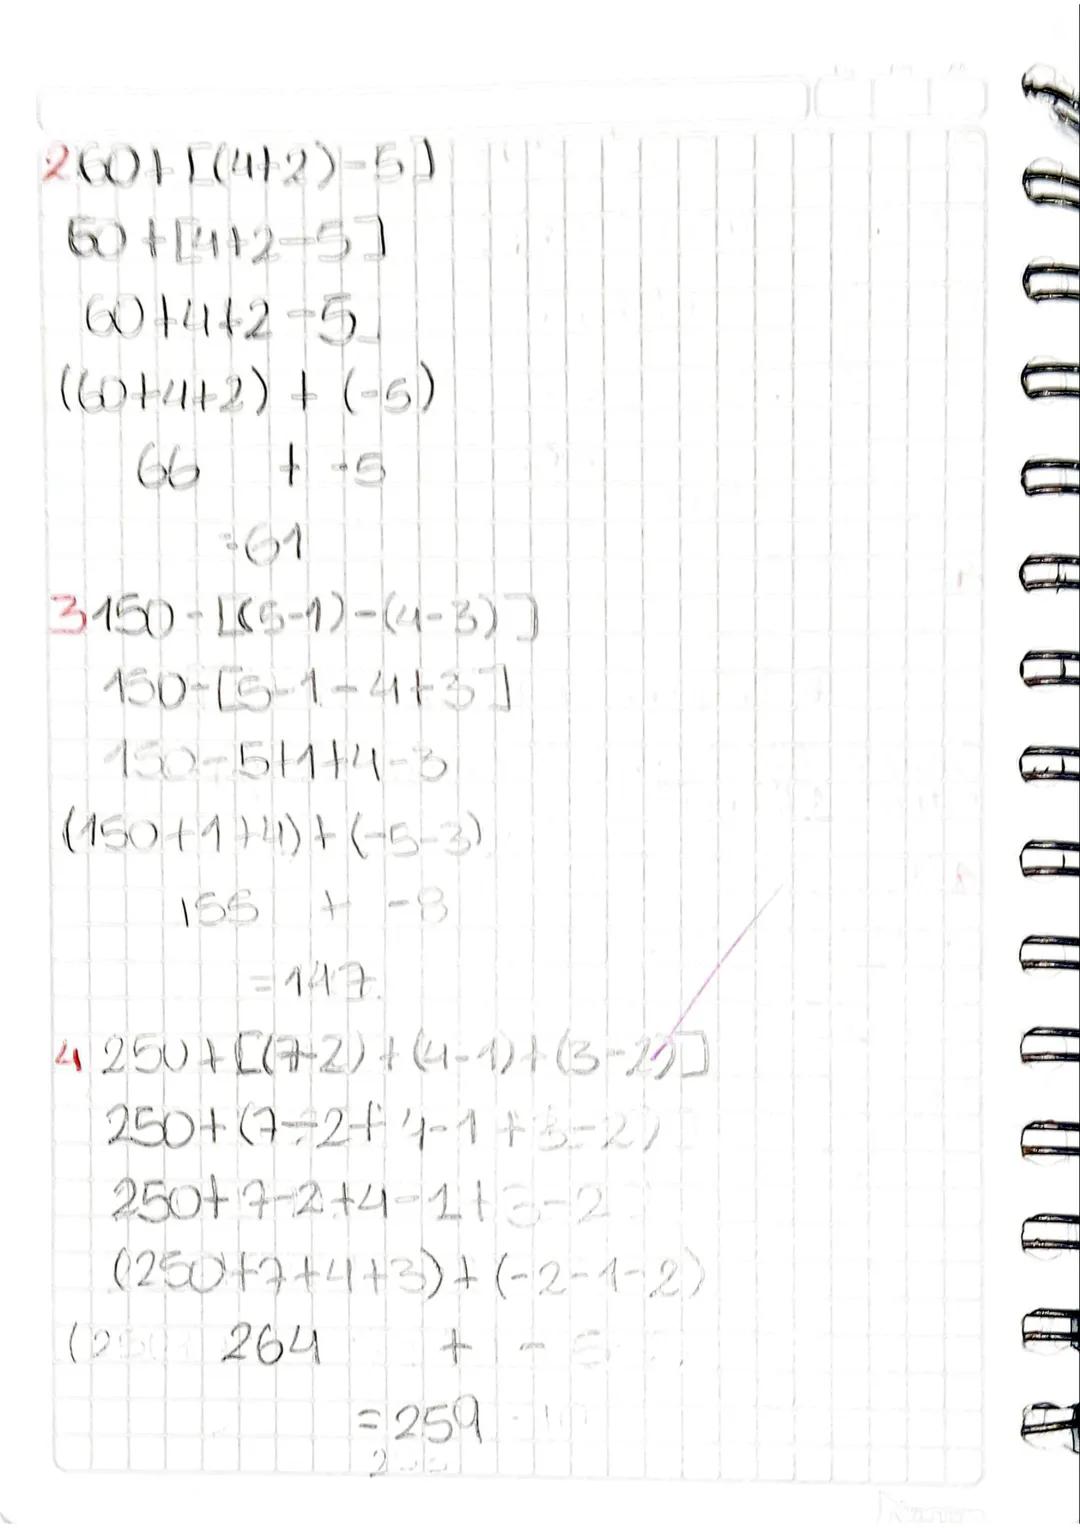 2 60+[(4+2)-5]
60+[4+2-5]
60+4+2-5
(60+4+2) + (-5)
66 + -5
=61
3 150-[(5-1)-(4-3)]
150-[5-1-4+3]
150-5+1+4-3
(150+1+4)+(-5-3)
155 + -8
=147.
4 250+[(7-2)+(4-1)+(3-2)]
250+(7-2+4-1+3-2)
250+7-2+4-1+3-2
(250+7+4+3)+(-2-1-2)
264 + -5
=259